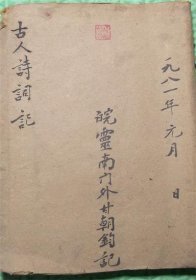 一九八一年元月 日
皖靈南门外甘朝鈞記
古人詩詞記